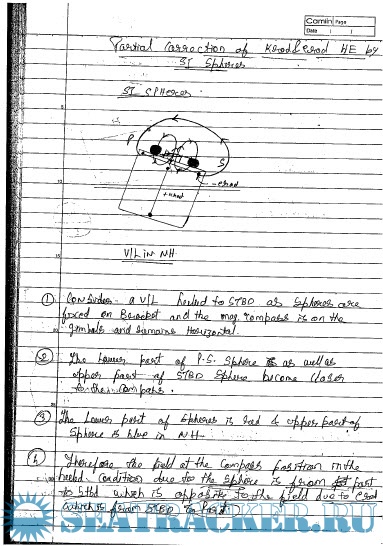 Camlin Page
Date / /
Partial Correction of Krod & erod HE by
SI Spheres
SI SPHERES
P
S
- erod
+ erod
V/L in NH
① Consider a V/L heeled to STBD as Spheres are
fixed on Bracket and the mag. compass is on the
gimbals and remains Horizontal.
② The Lower part of P.S. Sphere is as well as
upper part of STBD Sphere become closer
to the compass.
③ The Lower part of Spheres is red & upper part of
Sphere is blue in NH.
Therefore the field at the Compass position in the
heeled condition due to the Sphere is from port
to Stbd which is opposite to the field due to erod
which is from STBD to Port
SEATRACKER.RU